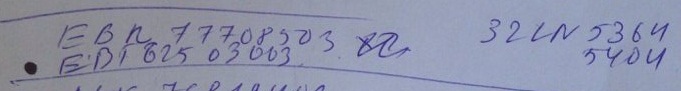 EBR 77708503 32LN 5364
EBT 62503003 5404